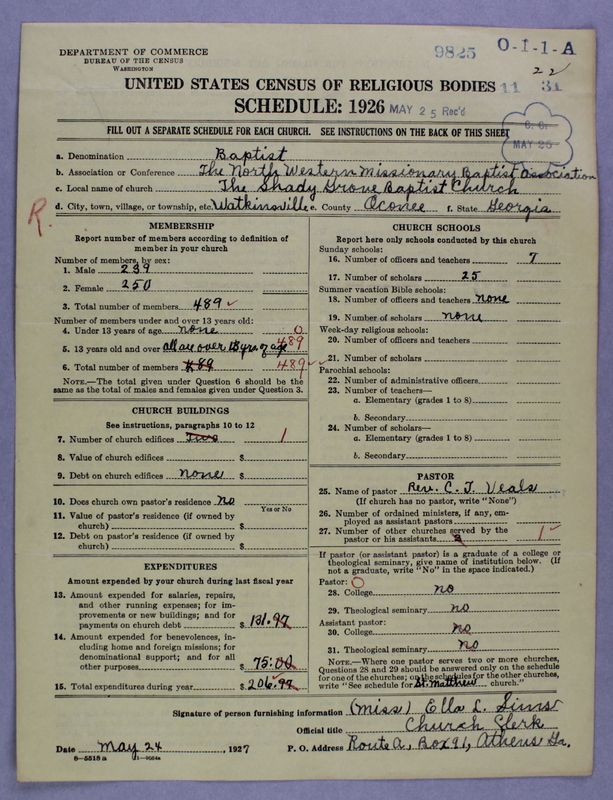 DEPARTMENT OF COMMERCE
BUREAU OF THE CENSUS
WASHINGTON
9825 O-1-1-A
22
UNITED STATES CENSUS OF RELIGIOUS BODIES 11 31
SCHEDULE: 1926 MAY 25 Rec'd
MAY 25
FILL OUT A SEPARATE SCHEDULE FOR EACH CHURCH. SEE INSTRUCTIONS ON THE BACK OF THIS SHEET
a. Denomination Baptist
b. Association or Conference The North Western Missionary Baptist Association
c. Local name of church The Shady Grove Baptist Church
d. City, town, village, or township, etc. Watkinsville e. County Oconee f. State Georgia
R.
MEMBERSHIP
Report number of members according to definition of
member in your church
Number of members, by sex:
1. Male 239
2. Female 250
3. Total number of members 489
Number of members under and over 13 years old:
4. Under 13 years of age none 0
5. 13 years old and over all are over 13 yrs. of age 489
6. Total number of members 489 489
NOTE.—The total given under Question 6 should be the
same as the total of males and females given under Question 3.
CHURCH BUILDINGS
See instructions, paragraphs 10 to 12
7. Number of church edifices two 1
8. Value of church edifices $
9. Debt on church edifices none $
10. Does church own pastor's residence No
Yes or No
11. Value of pastor's residence (if owned by
church) $
12. Debt on pastor's residence (if owned by
church) $
EXPENDITURES
Amount expended by your church during last fiscal year
13. Amount expended for salaries, repairs,
and other running expenses; for im-
provements or new buildings; and for
payments on church debt $ 131.97
14. Amount expended for benevolences, in-
cluding home and foreign missions; for
denominational support; and for all
other purposes $ 75.00
15. Total expenditures during year $ 206.97
CHURCH SCHOOLS
Report here only schools conducted by this church
Sunday schools:
16. Number of officers and teachers 7
17. Number of scholars 25
Summer vacation Bible schools:
18. Number of officers and teachers none
19. Number of scholars none
Week-day religious schools:
20. Number of officers and teachers
21. Number of scholars
Parochial schools:
22. Number of administrative officers
23. Number of teachers—
a. Elementary (grades 1 to 8)
b. Secondary
24. Number of scholars—
a. Elementary (grades 1 to 8)
b. Secondary
PASTOR
25. Name of pastor Rev. C. T. Veals
(If church has no pastor, write "None")
26. Number of ordained ministers, if any, em-
ployed as assistant pastors
27. Number of other churches served by the
pastor or his assistants 1
If pastor (or assistant pastor) is a graduate of a college or
theological seminary, give name of institution below. (If
not a graduate, write "No" in the space indicated.)
Pastor: O
28. College no
29. Theological seminary no
Assistant pastor:
30. College no
31. Theological seminary no
NOTE.—Where one pastor serves two or more churches,
Questions 28 and 29 should be answered only on the schedule
for one of the churches; on the schedules for the other churches,
write "See schedule for St. Matthew church."
Signature of person furnishing information (Miss) Ella L. Sims
Official title Church Clerk
Date May 24, 1927 P. O. Address Route A, Box 91, Athens Ga.
8—5518a